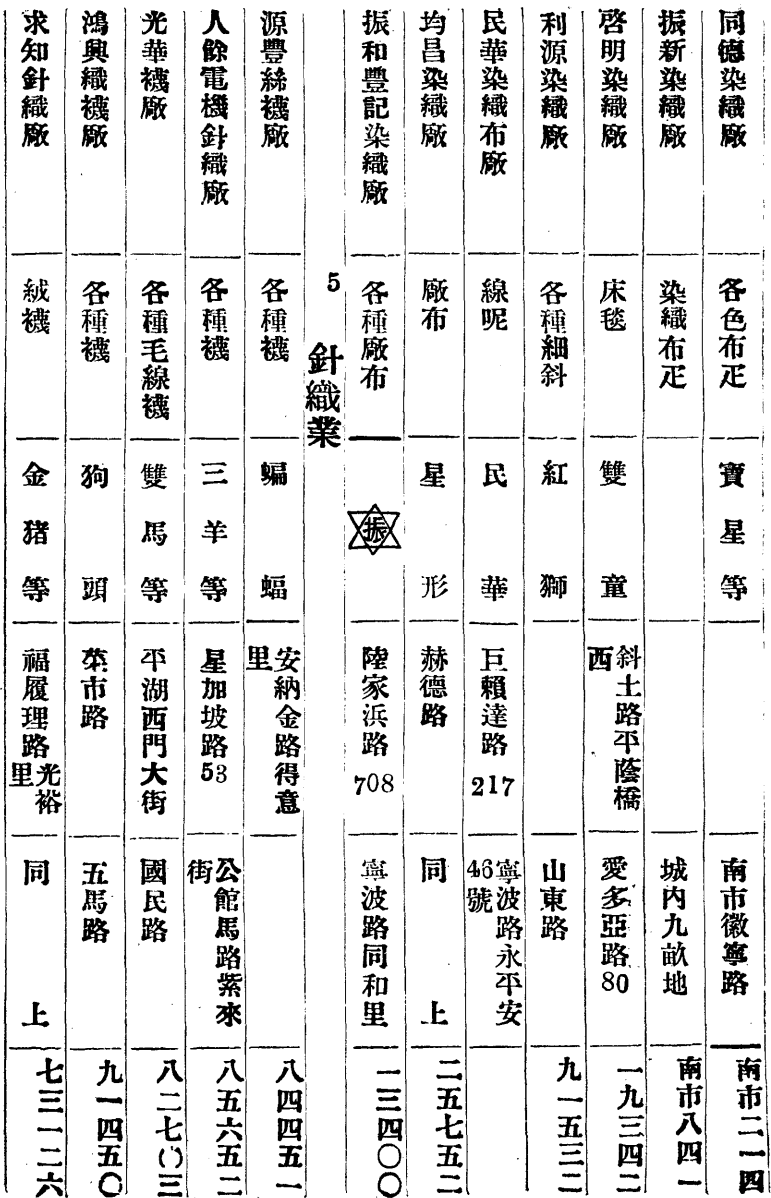 同德染織廠 各色布疋 寶星等 南市徽寧路 南市二一四
振新染織廠 染織布疋 城内九畝地 南市八四一
啓明染織廠 床毯 雙童 斜土路平蔭橋西 愛多亞路80 一九三四二
利源染織廠 各種細斜 紅獅 山東路 九一五三二
民華染織布廠 線呢 民華 巨賴達路217 寧波路永平安46號
均昌染織廠 廠布 星形 赫德路 同上 二五七五二
振和豐記染織廠 各種廠布 振 陸家浜路708 寧波路同和里 一三四〇〇
5 針織業
源豐絲襪廠 各種襪 蝙蝠 安納金路得意里 八四四五一
人餘電機針織廠 各種襪 三羊等 星加坡路53 公館馬路紫來街 八五六五二
光華襪廠 各種毛線襪 雙馬等 平湖西門大街 國民路 八二七〇三
鴻興織襪廠 各種襪 狗頭 菜市路 五馬路 九一四五〇
求知針織廠 絨襪 金猪等 福履理路光裕里 同上 七三一二六